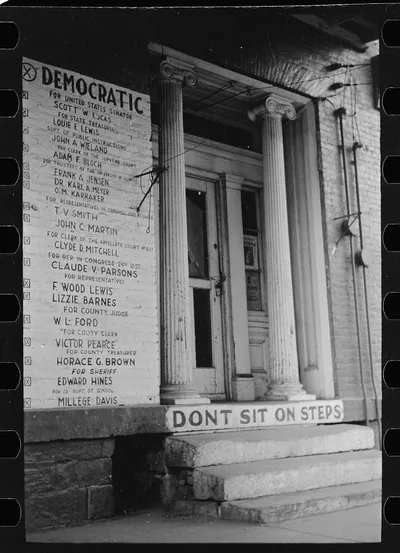 DEMOCRATIC
FOR UNITED STATES SENATOR
SCOTT W. LUCAS
FOR STATE TREASURER
LOUIE E. LEWIS
SUPT. OF PUBLIC INSTRUCTIONS
JOHN A. WIELAND
FOR CLERK OF THE SUPREME COURT
ADAM F. BLOCH
FOR TRUSTEES OF THE UNIVERSITY OF
FRANK A. JENSEN
DR. KARL A. MEYER
O.M. KARRAKER
FOR REPRESENTATIVES IN CONGRESS
T V SMITH
JOHN C. MARTIN
FOR CLERK OF THE APPELLATE COURT 4th DIST
CLYDE D. MITCHELL
FOR REP IN CONGRESS 24th DIST.
CLAUDE V. PARSONS
FOR REPRESENTATIVES
F. WOOD LEWIS
LIZZIE. BARNES
FOR COUNTY JUDGE
W. L. FORD
FOR COUNTY CLERK
VICTOR PEARCE
FOR COUNTY TREASURER
HORACE G. BROWN
FOR SHERIFF
EDWARD HINES
FOR CO. SUPT. OF SCHOOL
MILLEGE DAVIS
DONT SIT ON STEPS